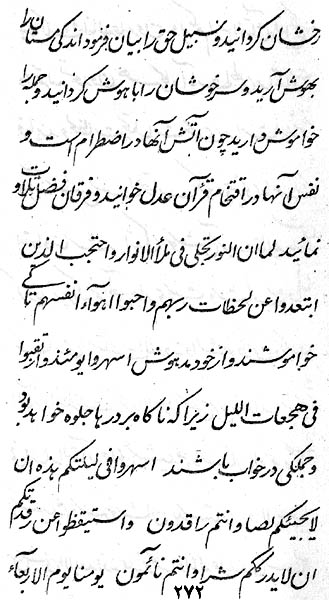 رخشان گردانید و سبیل حق را بیان فرمود اندکی مستان را
بهوش آرید و سرخوشان را با هوش گردانید و جمله را
خاموش دارید چون آتش آنها در اضطرام است و
نفس آنها در اقتحام قرآن عدل خوانید و فرقان فضل تلاوت
نمائید لما ان النور تجلی فی ملأ الانوار واحتجب الذین
ابتعدوا عن لحظات ربهم واحبوا اهواء انفسهم تا کی
خاموشند و از خود مدهوش اسهروا یومئذ وارتقبوا
فی هجعات اللیل زیرا که ناگاه بر درها جلوه خواهد بود
و جملگی در خواب باشند اسهروا فی لیلتکم هذه ان
لا یجیئکم لصا وانتم راقدون واستیقظوا عن رقدتکم
ان لا یدرککم شرا وانتم نائمون یومنا یوم الاربعاء
۲۷۲